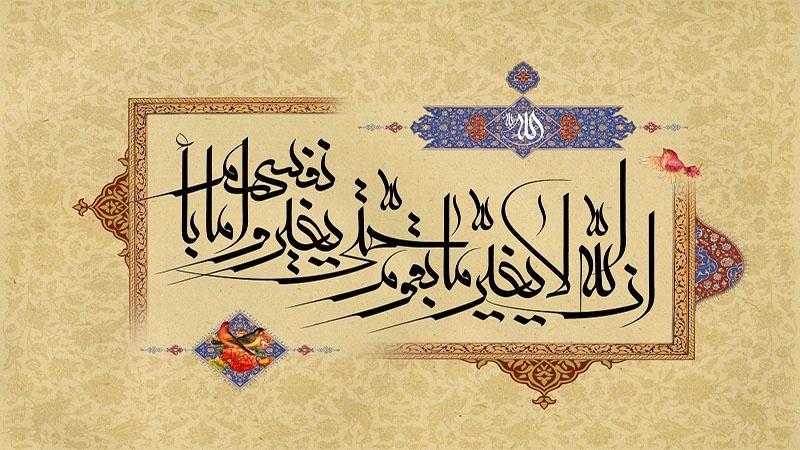 الله
ان الله لا یغیر ما بقوم حتی یغیروا ما بأنفسهم